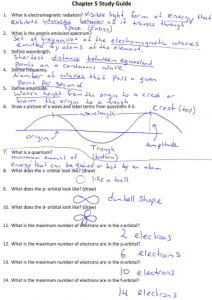 Chapter 5 Study Guide
1. What is electromagnetic radiation? Visible light form of energy that
exhibits wavelike behavior as it travels through
space (Energy)
2. What is the atomic emission spectrum?
Set of frequencies of the electromagnetic waves
emitted by atoms of the element.
3. Define wavelength.
Shortest distance between equivalent
points on a continuous wave.
4. Define frequency.
Number of waves that pass a given
point per second
5. Define amplitude.
waves height from the origin to a crest or
from the origin to a trough
6. Draw a picture of a wave and label terms from questions 3-5.
wavelength
crest (top)
origin
Trough
(bottom)
amplitude
7. What is a quantum?
minimum amount of
energy that can be gained or lost by an atom
8. What does the s-orbital look like? (draw)
like a ball
9. What does the p-orbital look like? (draw)
dumbell shape
10. What does the d-orbital look like? (draw)
11. What is the maximum number of electrons are in the s-orbital?
2 electrons
12. What is the maximum number of electrons are in the p-orbital?
6 electrons
13. What is the maximum number of electrons are in the d-orbital?
10 electrons
14. What is the maximum number of electrons are in the f-orbital?
14 electrons